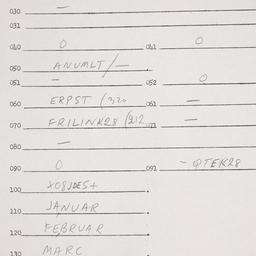 030 —
031
040 0 041 0
050 ANUMLT/—
051 — 052 0
060 ERPST (3,20 061 —
070 FRILINK28 (2,12 071 —
080 —
090 0 091 - QTEK28
100 XO8JDES+
110 JANUAR
120 FEBRUAR
130 MARC